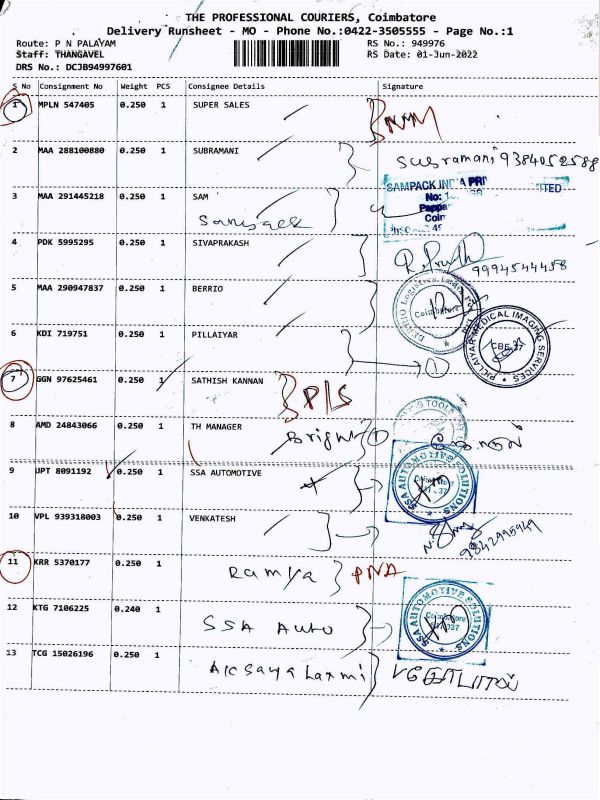 THE PROFESSIONAL COURIERS, Coimbatore
Delivery Runsheet - MO - Phone No.:0422-3505555 - Page No.:1
Route: P N PALAYAM RS No.: 949976
Staff: THANGAVEL RS Date: 01-Jun-2022
DRS No.: DCJB94997601
S No Consignment No Weight PCS Consignee Details Signature
1 MPLN 547405 0.250 1 SUPER SALES
2 MAA 288100880 0.250 1 SUBRAMANI Subramani 9384052588
3 MAA 291445218 0.250 1 SAM
SAMPACK
4 PDK 5995295 0.250 1 SIVAPRAKASH 9994544458
5 MAA 290947837 0.250 1 BERRIO
Coimbatore
6 KDI 719751 0.250 1 PILLAIYAR 1
PILLAIYAR MEDICAL IMAGING SERVICES
CBE-37
7 GGN 97625461 0.250 1 SATHISH KANNAN P/S
8 AMD 24843066 0.250 1 TH MANAGER
Bright 1
TOOLS
9 JPT 8091192 0.250 1 SSA AUTOMOTIVE
SSA AUTOMOTIVE SOLUTIONS
10 VPL 939318003 0.250 1 VENKATESH
9842995949
11 KRR 5370177 0.250 1 Ramya PNA
12 KTG 7106225 0.240 1 SSA Auto
SSA AUTOMOTIVE SOLUTIONS
Coimbatore
13 TCG 15026196 0.250 1 A/c Saya Laxmi